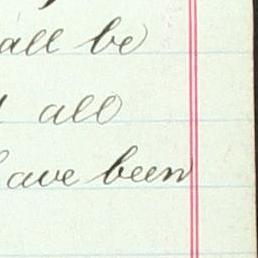 all be
all
ave been